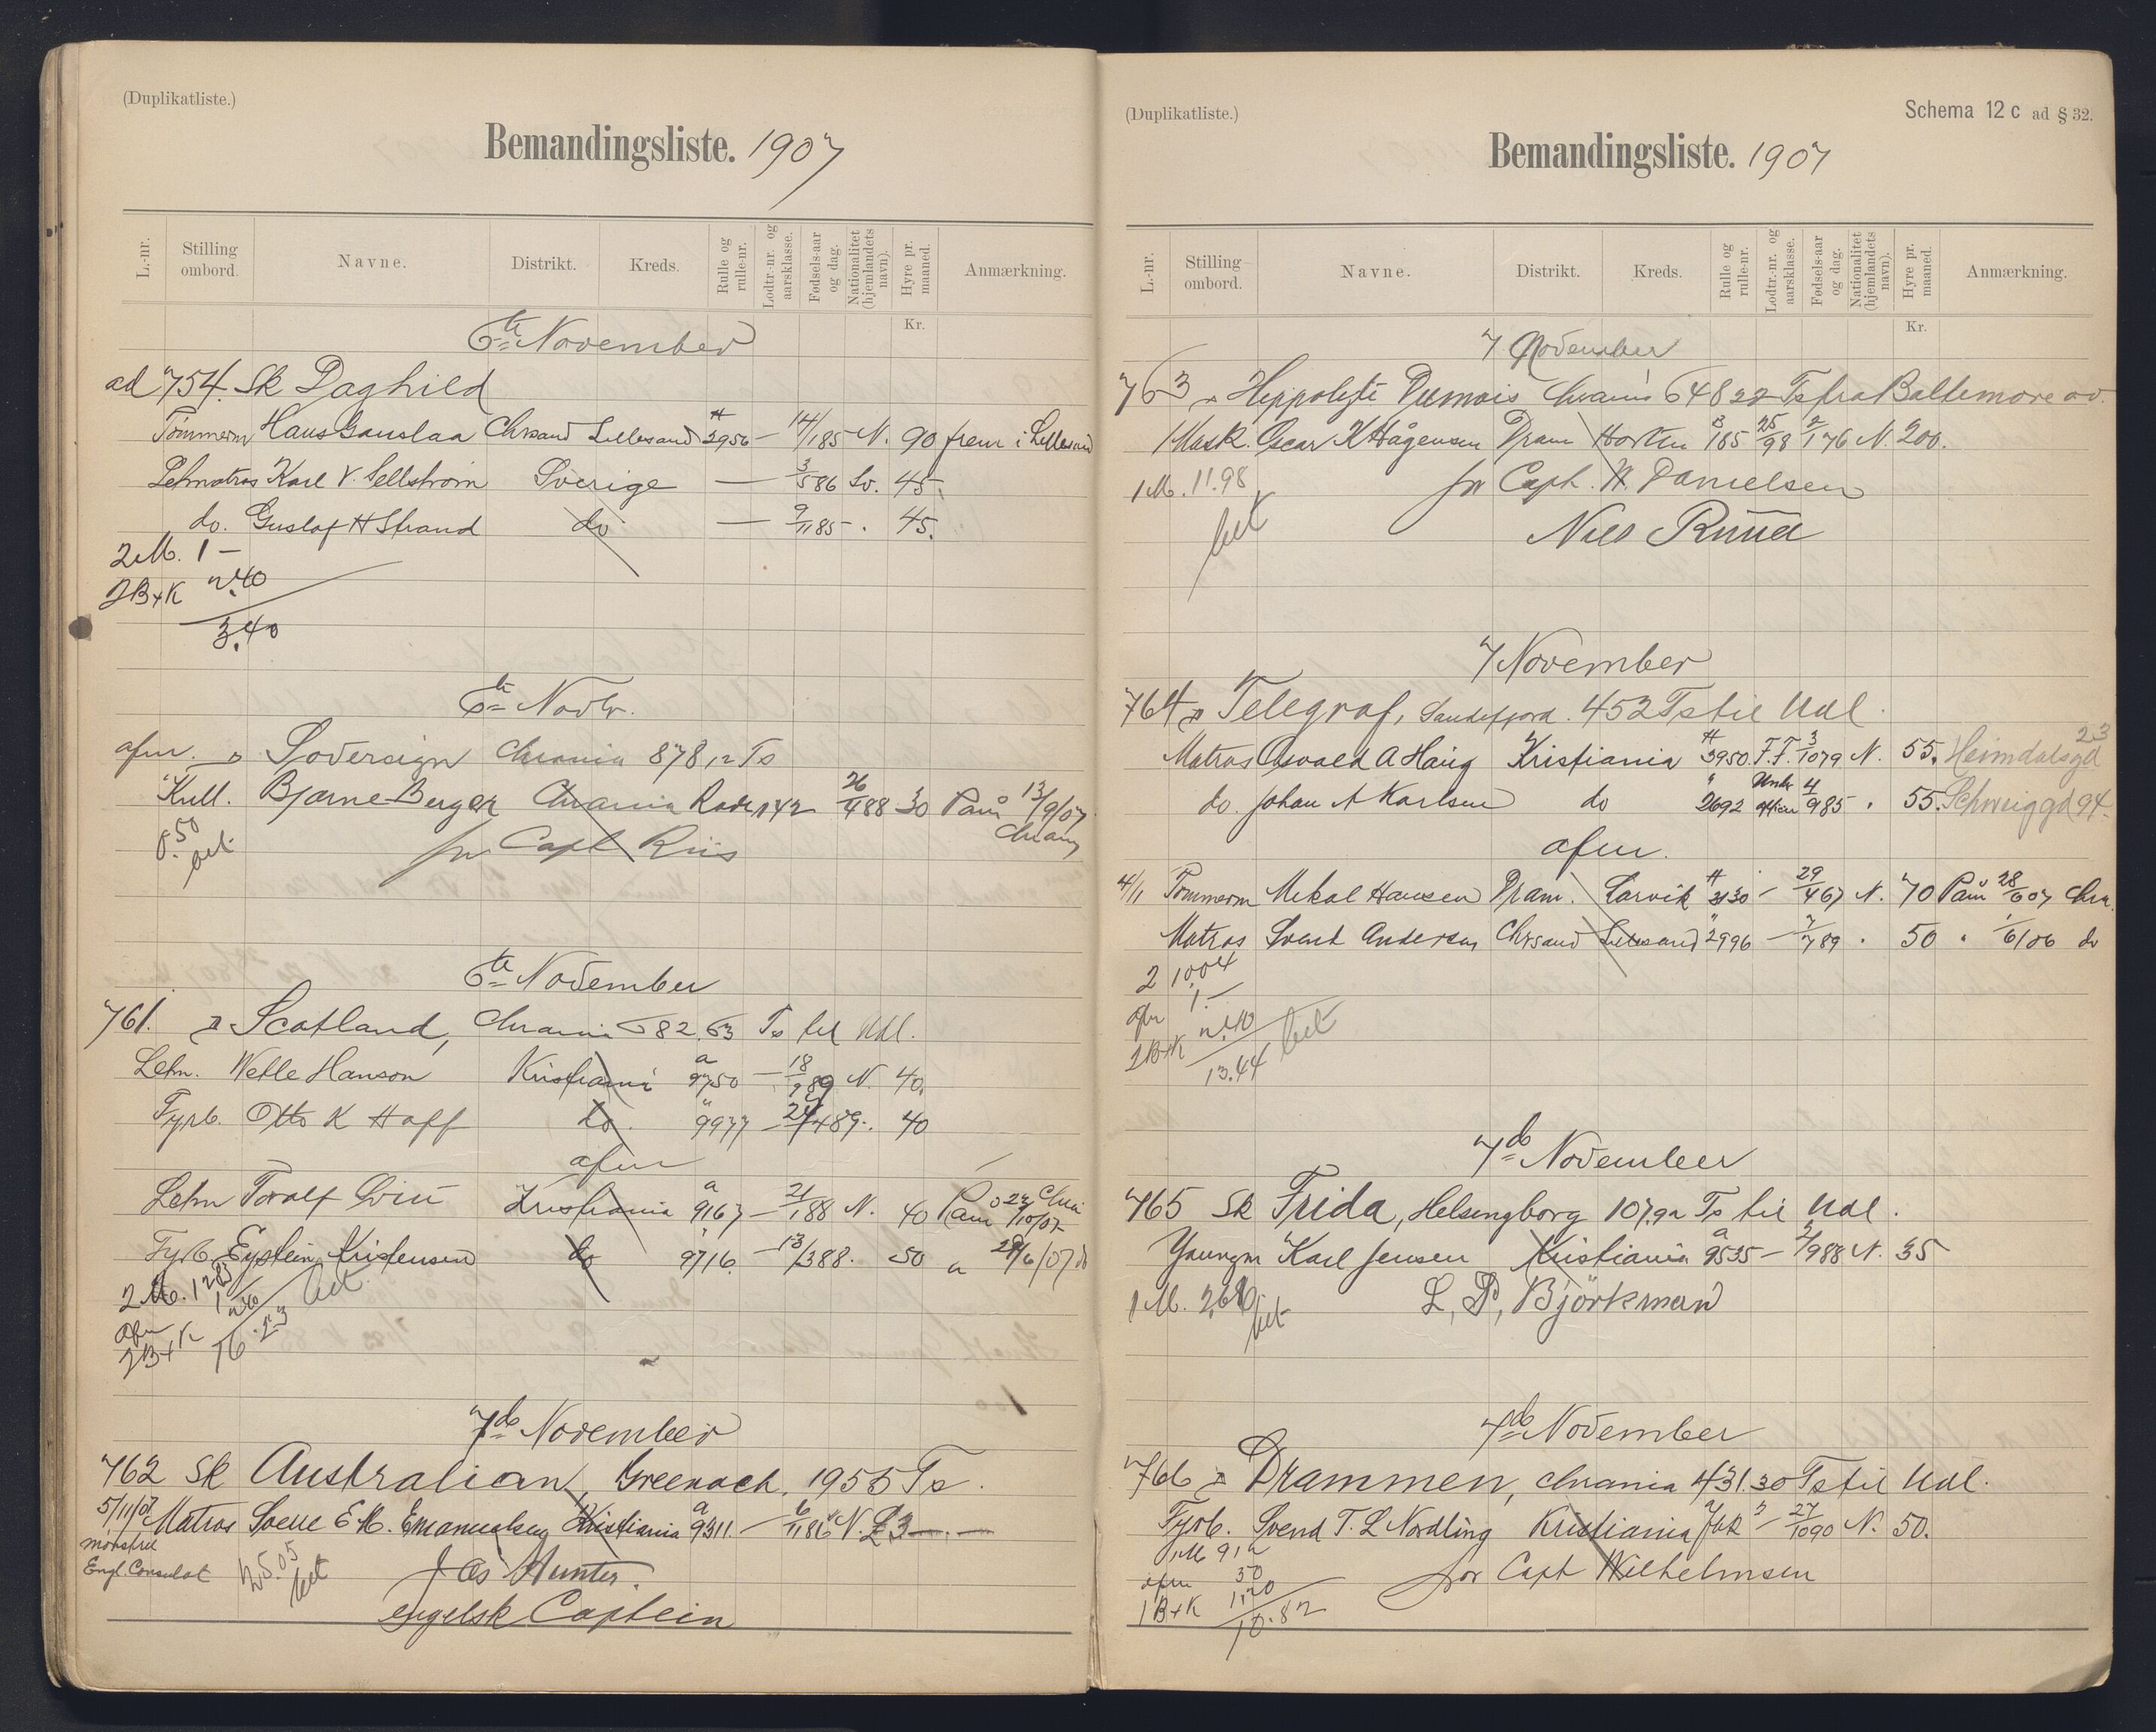 (Duplikatliste.)
Bemandingsliste. 1907
L.-nr.
Stilling ombord.
Navne.
Distrikt.
Kreds.
Rulle og rulle-nr.
Lodtr.-nr. og aarsklasse.
Fødsels-aar og dag.
Nationalitet (hjemlandets navn).
Hyre pr. maaned.
Anmærkning.
Kr.
6te November
ad 754. Sk Daghild
Tømmerm Hans Gauslaa Chrsand Lillesand 2956 — 14/1 85 N. 90 frem i Lillesand
Letmatros Karl V. Sellström Sverige — 3/5 86 Sv. 45.
do. Gustaf H Strand do — 9/11 85 . 45.
2 M. 1 —
2 B+K 2.40
3.40
6te Novbr.
afm. Sovereign Chrania 878,12 Ts
Kull. Bjarne Berger Chrania Rode 142 26/4 88 30 Paam 13/9/07
0.50 bet. for Capt Riis Chrania
6te November
761. Scotland, Chrania 682.63 Ts til Udl.
Letm. Wetle Hanson Kristiania a 9750 — 18/9 89 N. 40.
Fyrb. Otto K Hoff do. " 9977 — 24/4 89 . 40
afm
Letm Toralf Lviu Kristiania a 9167 — 21/1 88 N. 40 Paam 24/10/07 Chria
Fyrb. Eystein Kristensen do 9716. — 13/3 88 . 50 " 29/6/07 do
2 M. bet
afm
2 B+K 16.23
7de November
762 Sk Australian, Greenock. 1955 Ts.
5/11/07 Matros Sverre E M. Emanuelsen Kristiania a 9311. — 6/11 86 N. £3 — . —
mønstret
Engl Consulat 25.05 bet
Jas Hunter.
engelsk Captein
(Duplikatliste.)
Schema 12 c ad § 32.
Bemandingsliste. 1907
L.-nr.
Stilling ombord.
Navne.
Distrikt.
Kreds.
Rulle og rulle-nr.
Lodtr.-nr. og aarsklasse.
Fødsels-aar og dag.
Nationalitet (hjemlandets navn).
Hyre pr. maaned.
Anmærkning.
Kr.
7 November
763 Hippolyte Dumois Chrania 648 22 Ts fra Baltemore
1 Mask. Oscar K Hågensen Dram Horten 185 25/98 2/1 76 N. 200.
1 M. 11.98 for Capt. N. Danielsen
bet Nils Ruud
7 November
764 Telegraf, Sandefjord. 452 Ts til Udl.
Matros Osvald A Haug Kristiania 3950. F.F. 3/10 79 N. 55. Heimdalsgd 23
do. Johan A Karlsen do " 2692 4/9 85 . 55. Schweiggd 94.
afm.
4/11 Tømmerm Mekal Hansen Dram. Larvik 3130 — 29/4 67 N. 70 Paam 28/6 07 Chra.
Matros Svend Andersen Chrsand Lillesand " 2996 — 7/7 89 . 50 . 1/6/06 do
2 10.04
afm 1.—
2 B+K 2.40 bet
13.44
7de November
765 Sk Frida, Helsingborg 107.92 Ts til Udl.
Youngm Karl Jensen Kristiania a 9535 — 2/9 88 N. 35
1 M. bet L. P. Björkman
7de November
766 Drammen, Chrania 431.30 Ts til Udl.
Fyrb. Svend T. L Nordling Kristiania — 27/10 90 N. 50.
1 M 9 12 for Capt Wilhelmsen
afm 50
1 B+K 1.20
10.82